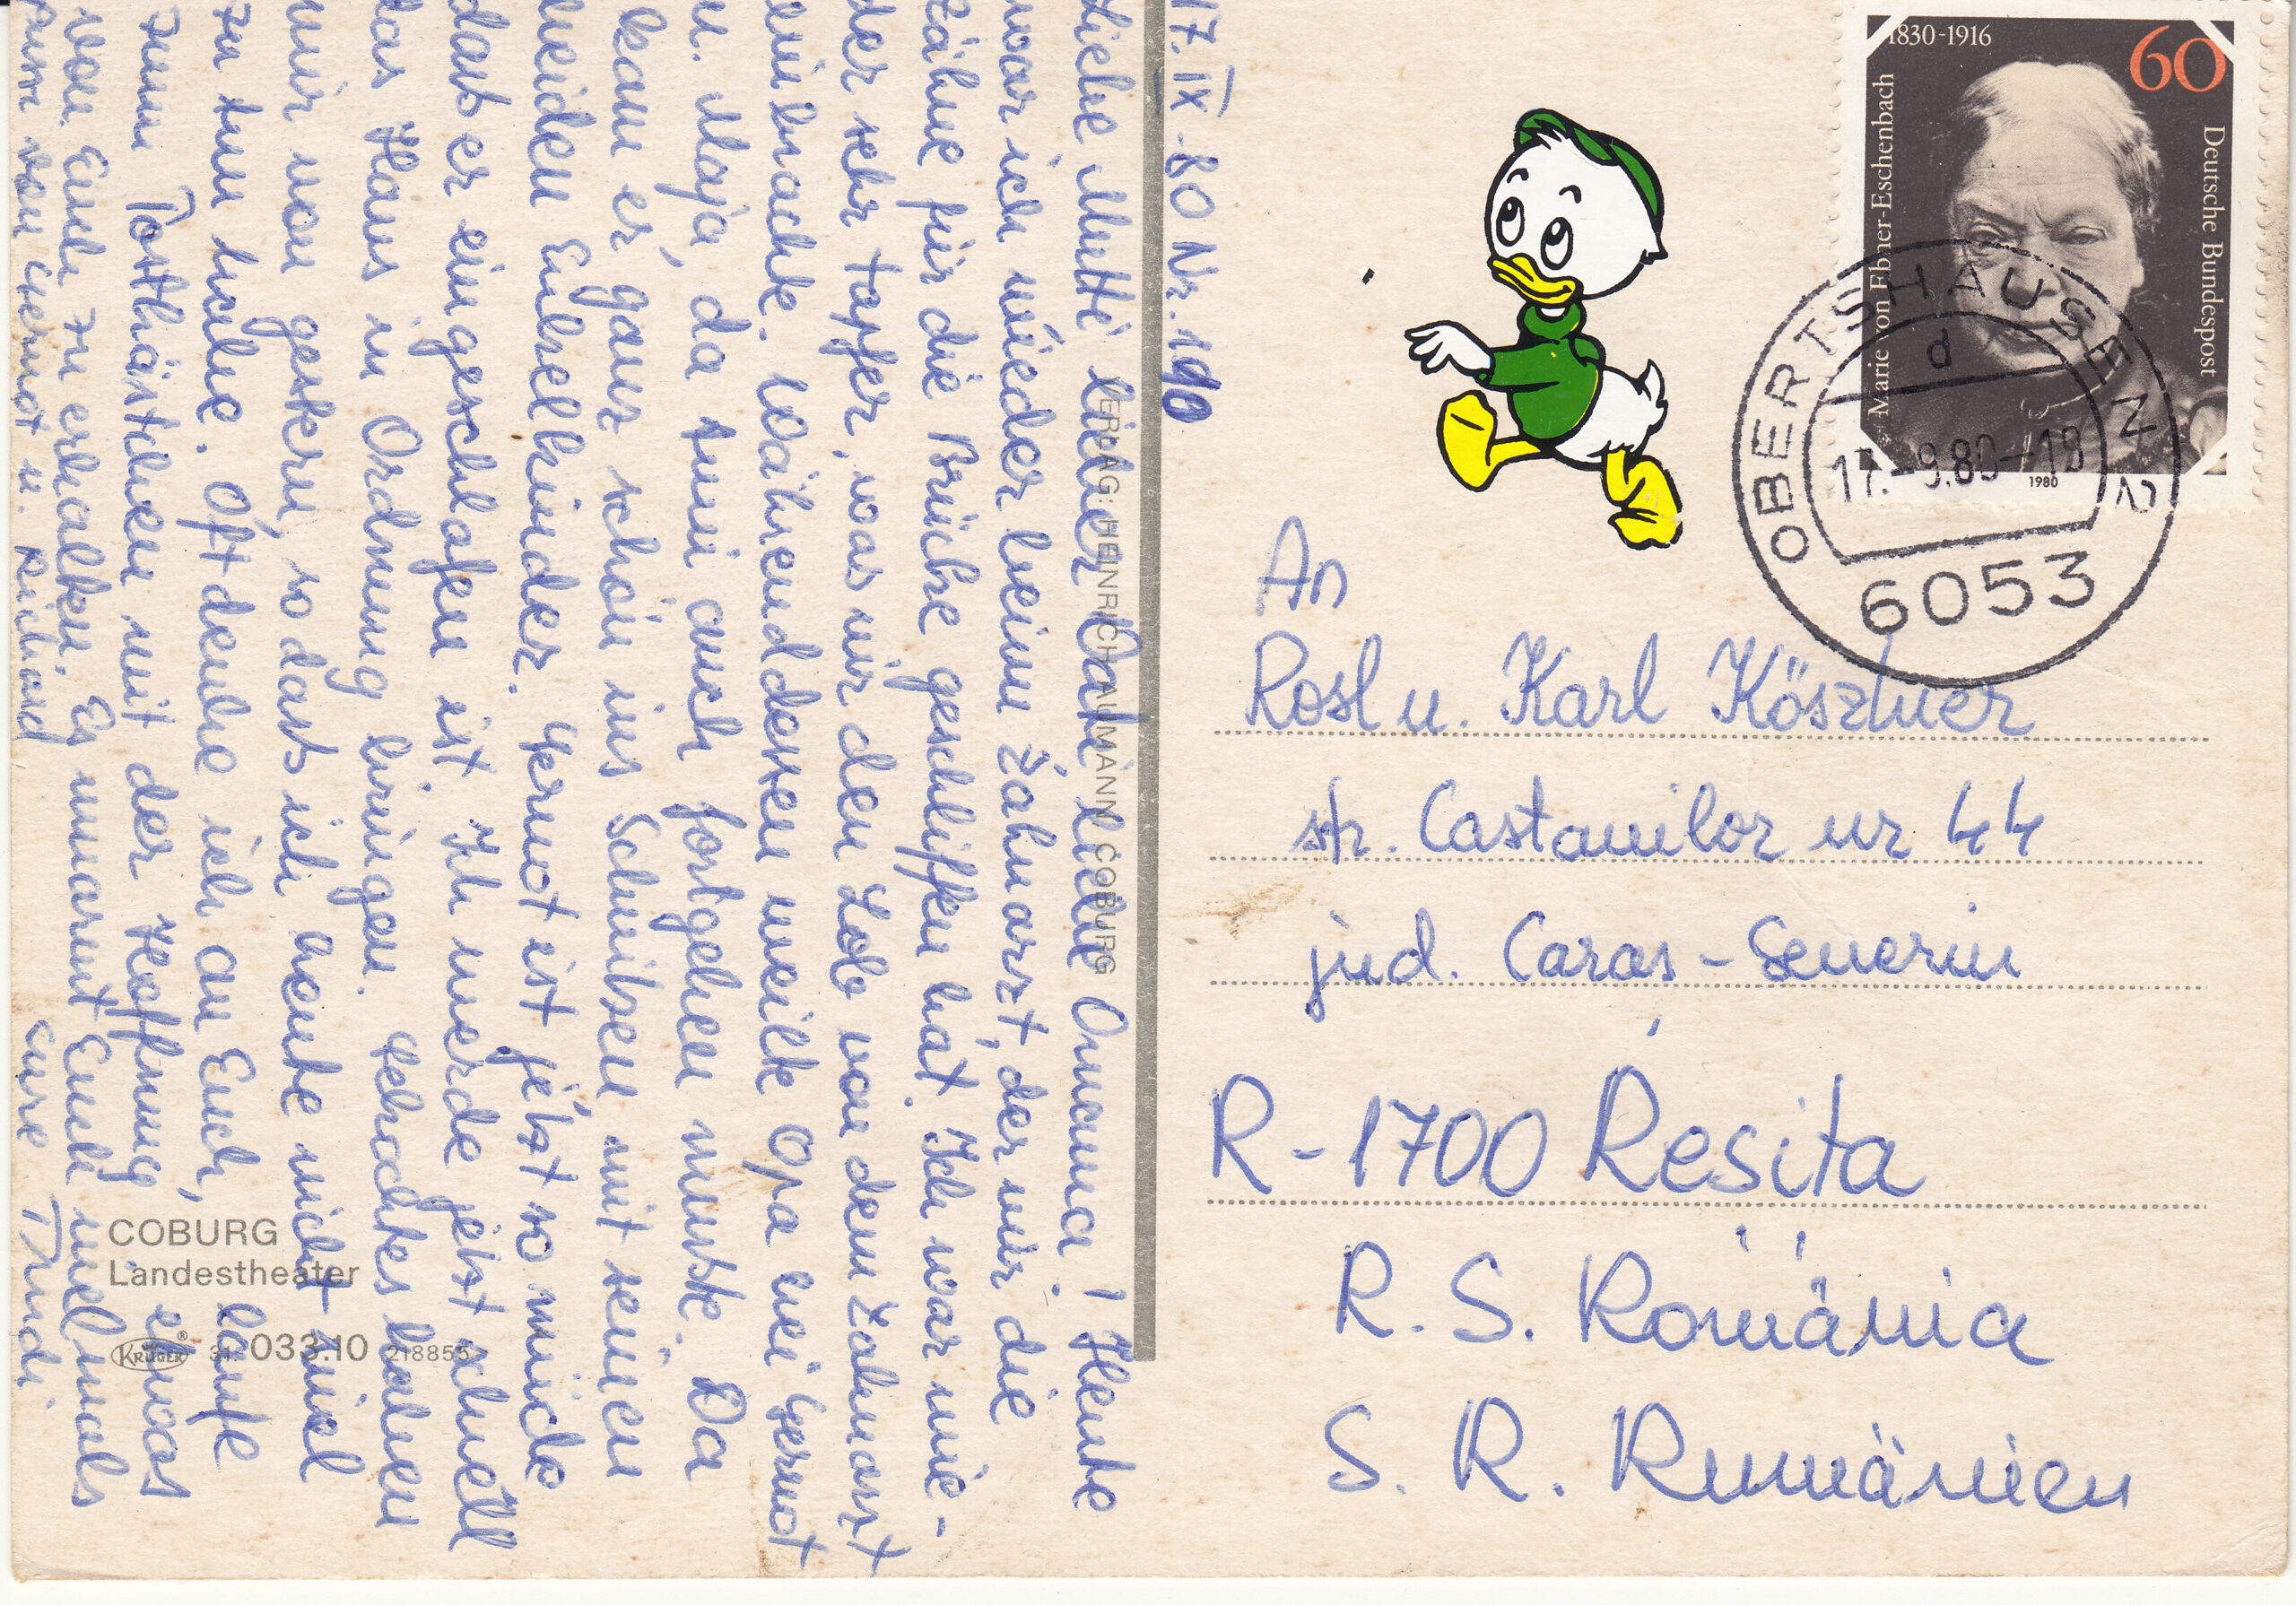 17. IX. 80 Nr. 190
Liebe Mutti lieber Vati liebe Omama! Heute
war ich wieder beim Zahnarzt, der mir die
Zähne für die Brücke geschliffen hat. Ich war wie-
der sehr tapfer, was mir den Lob von dem Zahnarzt
einbrachte. Währenddessen weilte Opa bei Gernot
u. Maja, da Tuni auch fortgehen musste. Da
kam er ganz schön ins Schwitzen mit seinen
beiden Enkelkinder. Gernot ist jetzt so müde
dass er eingeschlafen ist. Ich werde jetzt schnell
das Haus in Ordnung bringen. Gekochtes haben
wir von gestern, so dass ich heute nicht viel
zu tun habe. Oft denke ich an Euch, laufe
zum Postkästchen mit der Hoffnung etwas
von Euch zu erhalten. Es umarmt Euch vielmals
von Gernot u. Richard eure Trudi
VERLAG HEINRICH AUMANN COBURG
COBURG
Landestheater
KRÜGER ® 033.10 218855
1830-1916
60
Marie von Ebner-Eschenbach
Deutsche Bundespost
1980
OBERTSHAUSEN 2
d
17.-9.80-18
6053
An
Rosl u. Karl Kösztner
str. Castanilor nr 44
jud. Caraș-Severin
R-1700 Reșița
R. S. România
S. R. Rumänien